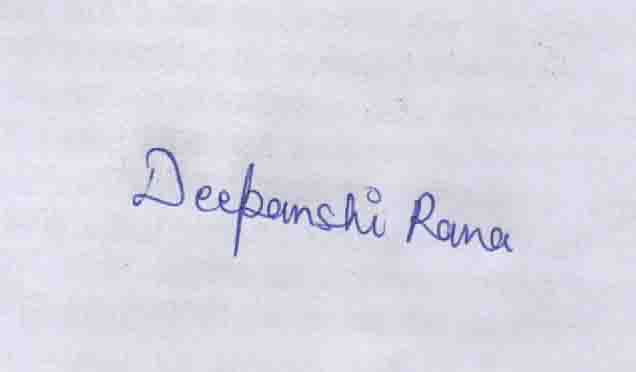 Deepanshi Rana